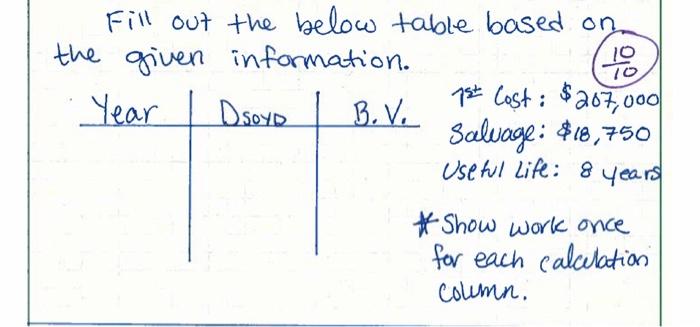 Fill out the below table based on
the given information.
10
10
Year DSOYD B.V.
1st Cost: $267,000
Salvage: $18,750
Useful Life: 8 years
* Show work once
for each calculation
column.